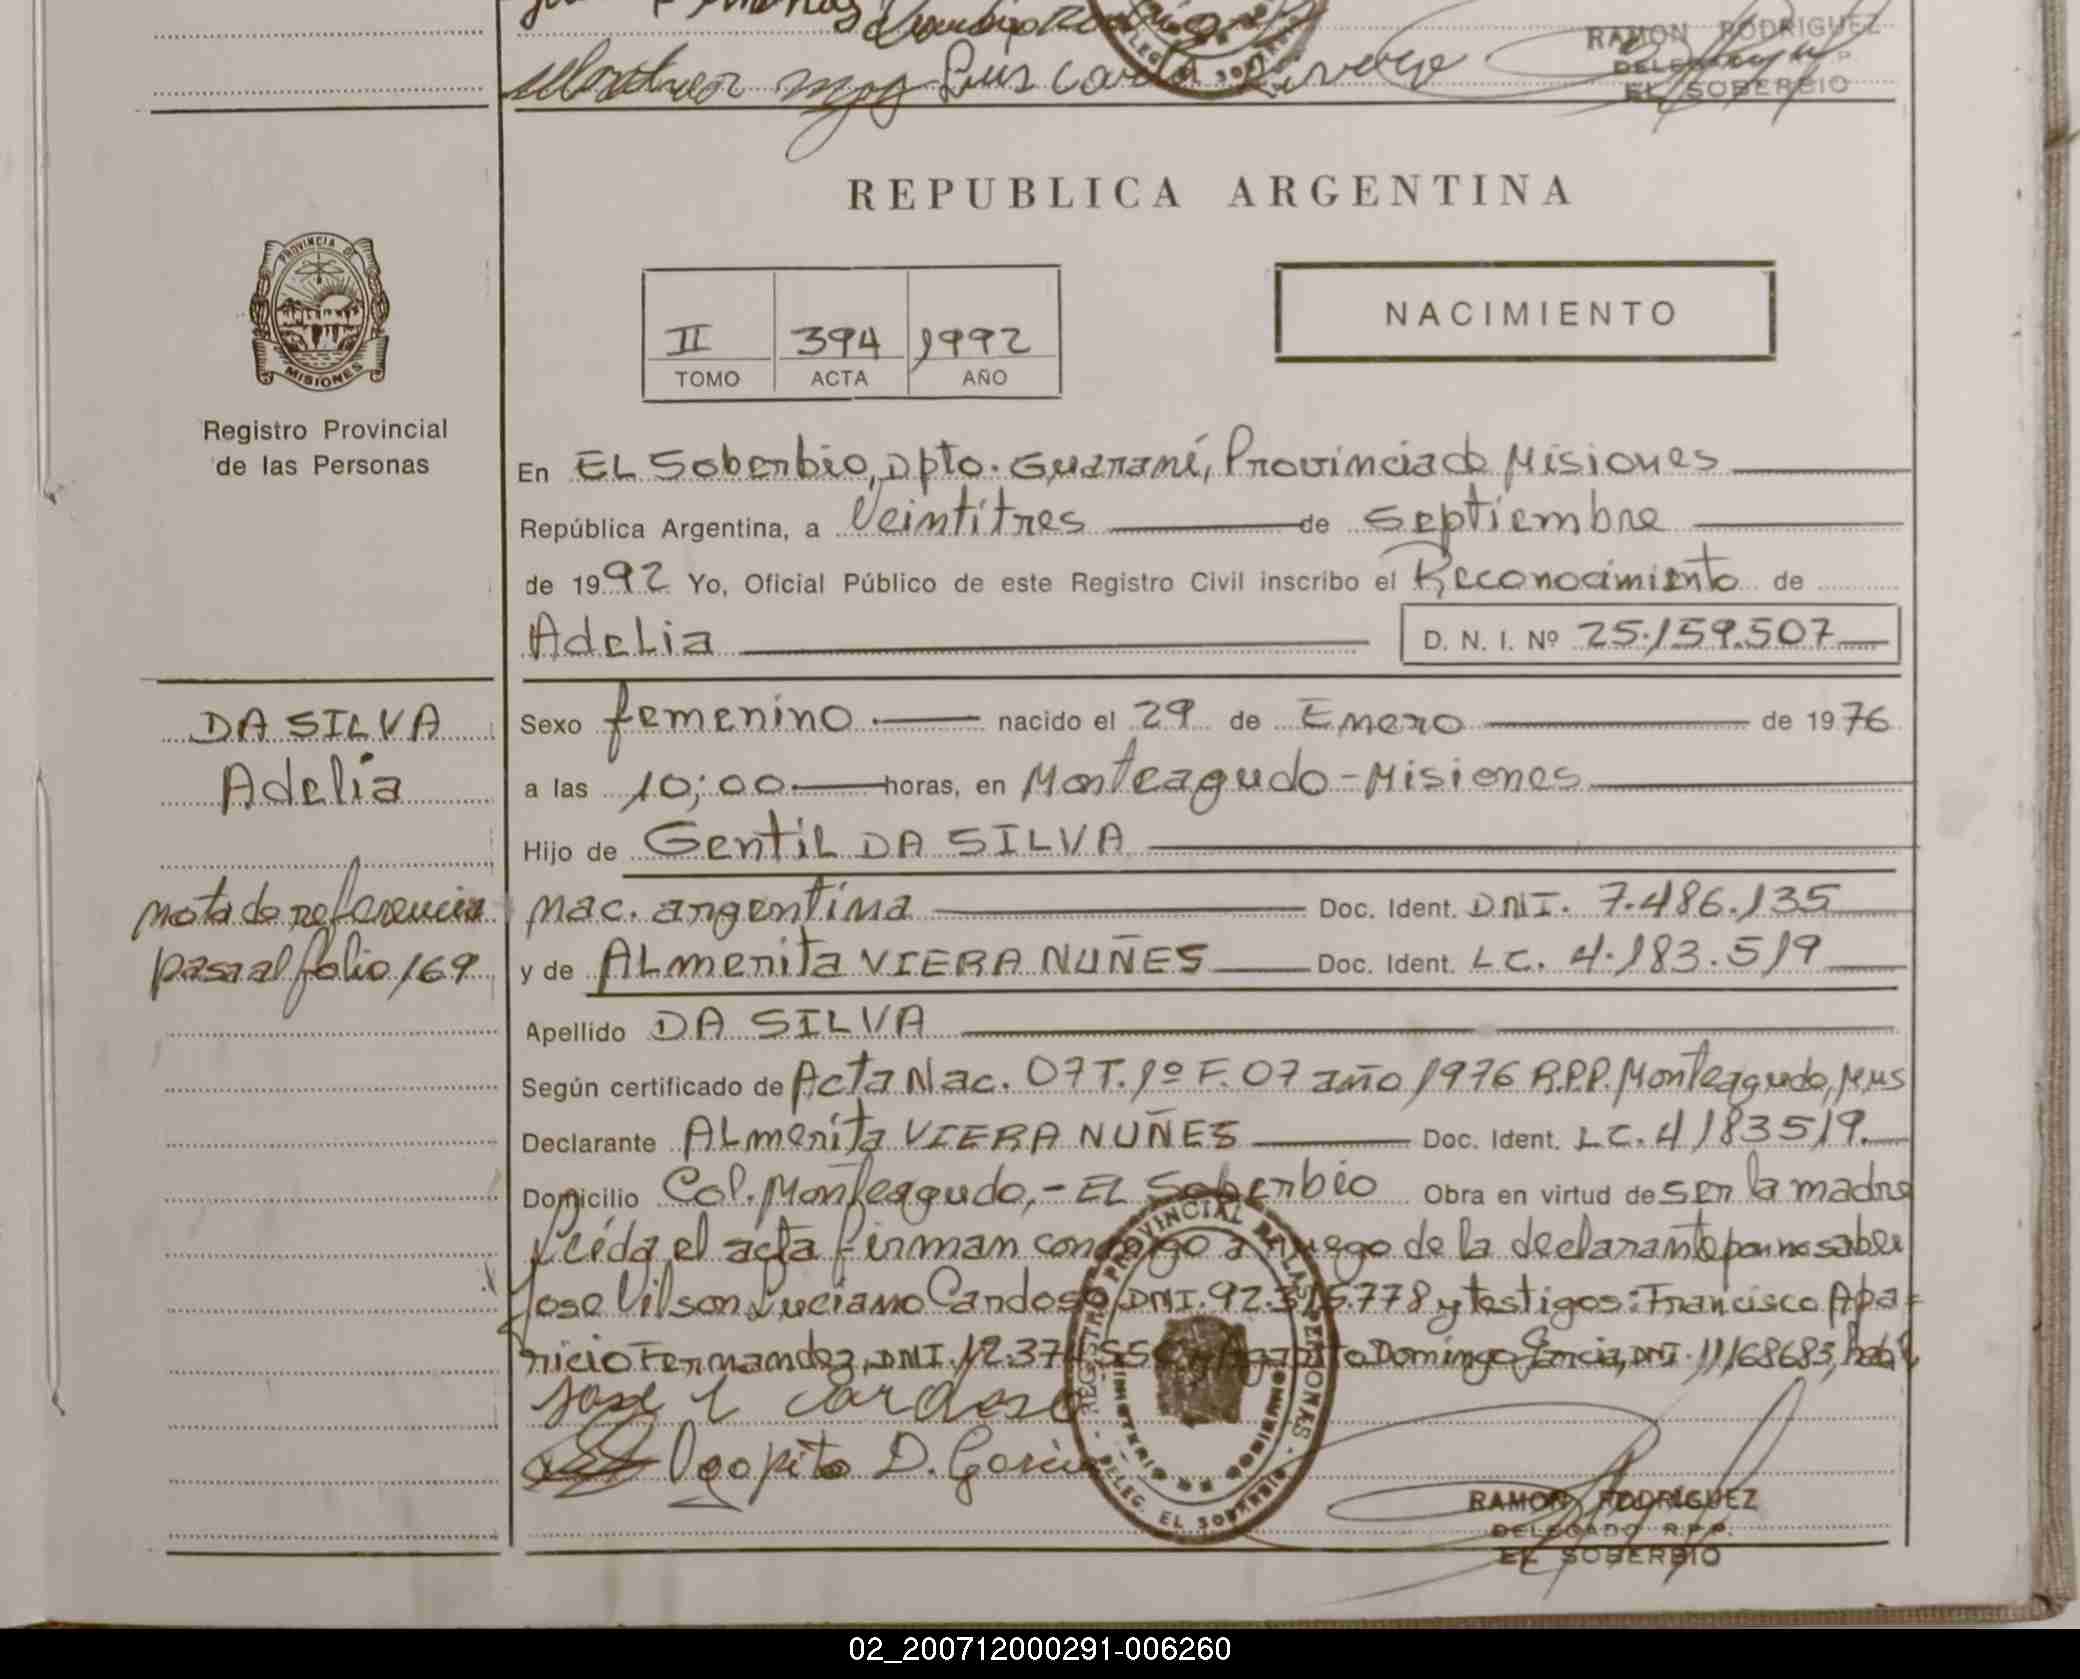 Luis Carlos
RAMON RODRIGUEZ
DELEGADO R.P.P.
EL SOBERBIO
REPUBLICA ARGENTINA
PROVINCIA DE
MISIONES
Registro Provincial
de las Personas
II 394 1992
TOMO ACTA AÑO
NACIMIENTO
En EL Soberbio, Dpto. Guaraní, Provincia de Misiones
República Argentina, a Veintitres de Septiembre
de 1992 Yo, Oficial Público de este Registro Civil inscribo el Reconocimiento de
Adelia D. N. I. Nº 25.159.507
DA SILVA
Adelia
Sexo femenino nacido el 29 de Enero de 1976
a las 10;00 horas, en Monteagudo - Misiones
Hijo de Gentil DA SILVA
nac. argentina Doc. Ident. DNI. 7.486.135
nota de referencia
pasa al folio 169
y de ALmenita VIERA NUÑES Doc. Ident. LC. 4.183.519
Apellido DA SILVA
Según certificado de Acta Nac. 07 T. 1º F. 07 año 1976 R.P.P. Monteagudo, Mnes
Declarante ALmenita VIERA NUÑES Doc. Ident. LC. 4183519.
Domicilio Col. Monteagudo, - EL Soberbio Obra en virtud de ser la madre
Leída el acta firman conmigo a ruego de la declarante por no saber
Jose Vilson Luciano Cardoso, DNI. 92.315.778 y testigos: Francisco Apa-
ricio Fernandez, DNI. y Agapito Domingo Garcia, DNI. 11168683, hab.
Jose L Cardoso
Agapito D. Garcia
REGISTRO PROVINCIAL DE LAS PERSONAS
MINISTERIO DE GOBIERNO
DELEG. EL SOBERBIO
RAMON RODRIGUEZ
DELEGADO R.P.P.
EL SOBERBIO
02_200712000291-006260